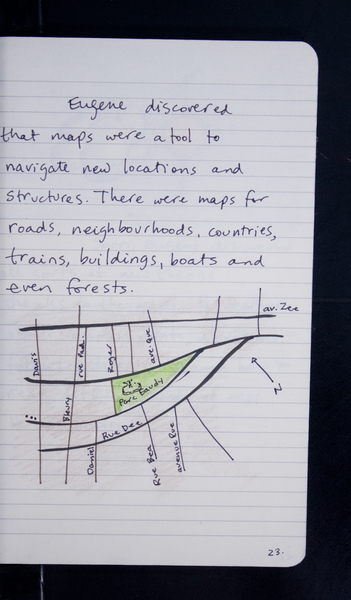 Eugene discovered
that maps were a tool to
navigate new locations and
structures. There were maps for
roads, neighbourhoods, countries,
trains, buildings, boats and
even forests.
av. Zee
Davis
Roger
ave. Que
Parc Gaudy
N
Fleury
Rue Dee
Daniel
Rue Bea
avenue Rue
23.